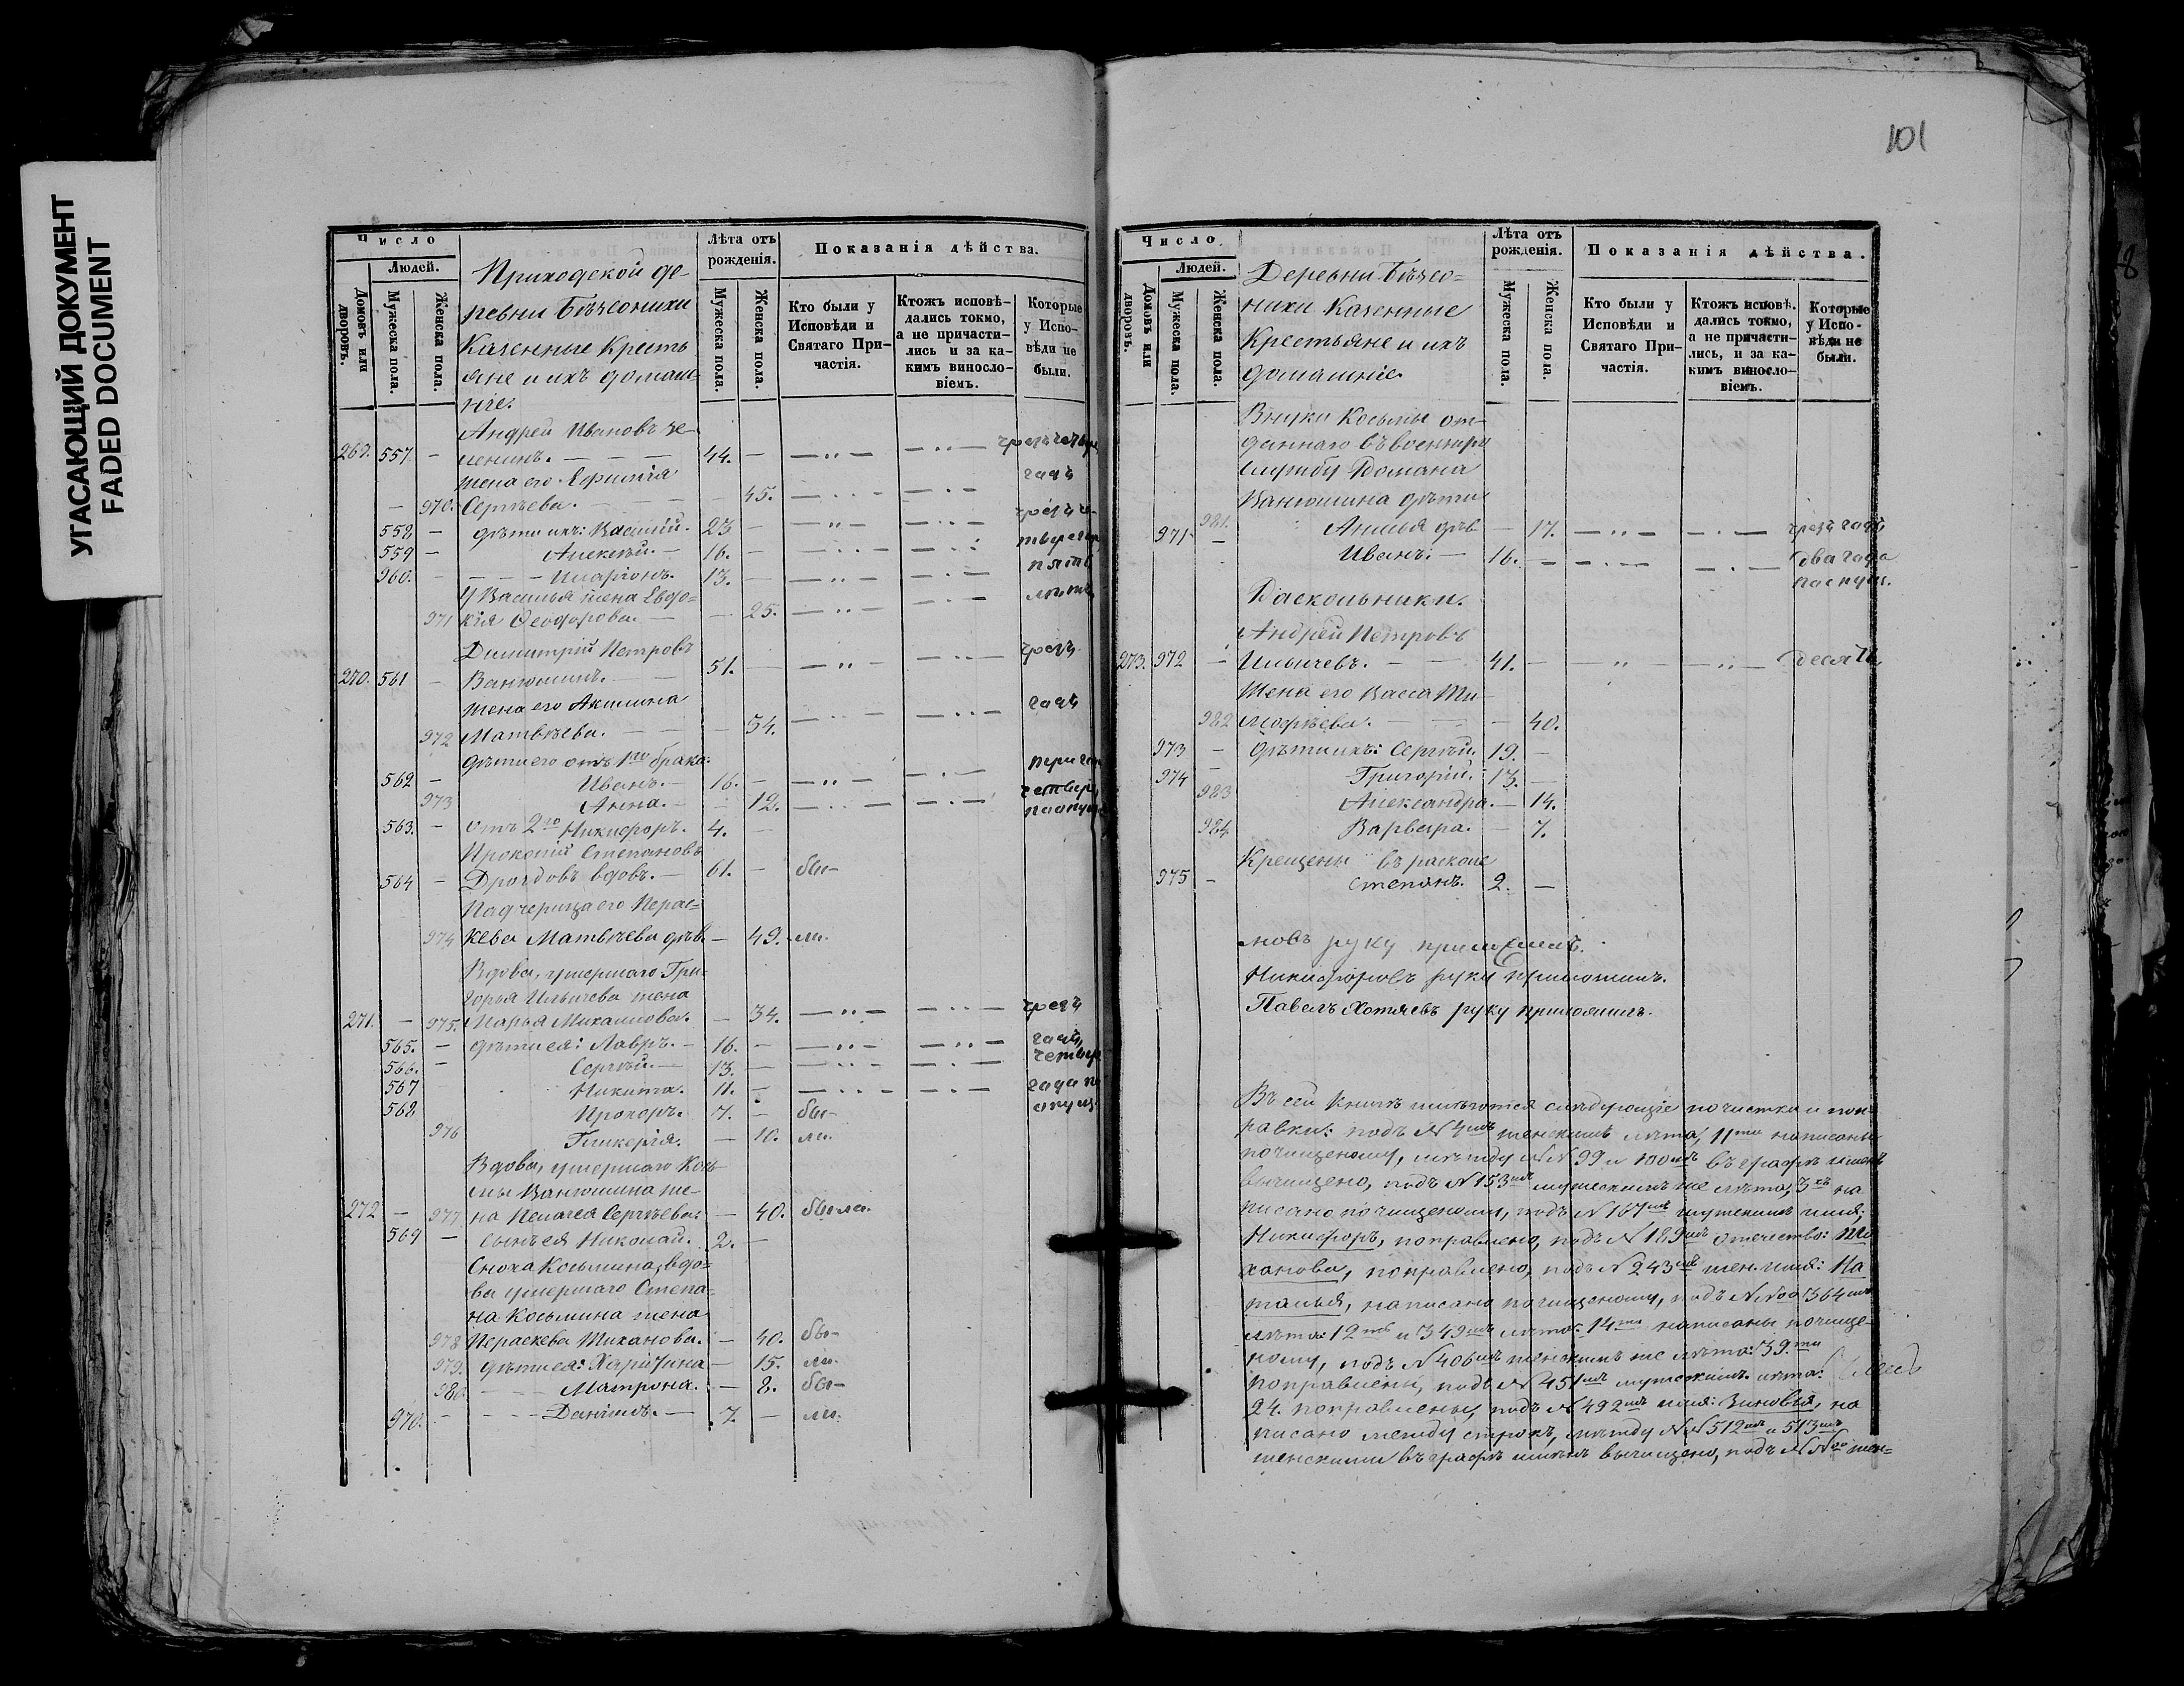 УГАСАЮЩИЙ ДОКУМЕНТ
FADED DOCUMENT
Число
Людей.
Домовъ или дворовъ.
Мужеска пола.
Женска пола.
Приходской де-
ревни
Казенные Кресть
яне и ихъ домаш-
ніе.
Лѣта отъ
рожденія.
Мужеска пола.
Женска пола.
Показанія дѣйства.
Кто были у
Исповѣди и
Святаго При-
частія.
Ктожъ исповѣ-
дались токмо,
а не причасти-
лись и за ка-
кимъ винносло-
віемъ.
Которые
у Испо-
вѣди не
были.
Андрей Ивановъ
269. 557. — 44. —
жена его
— 970. Сергѣева. — 45.
558 — дѣти ихъ: Василій. 23 —
559 — Алексѣй. — 16. —
960. — Иларіонъ. 13. —
У Василья жена Евдо-
971 кія Ѳеодорова. — 25.
Димитрій Петровъ
270. 561 — Ванюшинъ. 51. —
жена его Акилина
972 Матвѣева. — 34.
дѣти его отъ 1го брака:
562 — Иванъ. — 16. —
973 Анна. — 12.
563. — отъ 2го Никифоръ. 4. —
Прокопій Степановъ
564 — Дроздовъ вдовъ. — 61. — бы-
Падчерица его Парас-
974 кева Матвѣева дѣв. — 49. ли.
Вдова, умершаго Гри-
горья Ильичева жена
271. — 975. Марья Михаилова. — 34. чрезъ
565. — дѣти ея: Лавръ. — 16. —
566. — Сергѣй. — 13. —
567 Никита. 11. —
568 Прохоръ. 7. — бы-
976 Гликерія. — 10. ли.
Вдова, умершаго Козь-
мы Ванюшина же-
272 — 977 на Пелагея Сергѣева. — 40. были.
569 — сынъ ея Николай. 2. —
Сноха Козьмина, вдо-
ва умершаго Степа-
на Козьмина жена
978 Параскева Тиханова. — 40. бы-
979. дѣти ея: Харитина — 15. ли.
980. — Матрона. — 8. бы-
970. — Даніилъ. — 7. — ли.
101
Число
Людей.
Домовъ или дворовъ.
Мужеска пола.
Женска пола.
Деревни
Казенные
Крестьяне и ихъ
домашніе.
Лѣта отъ
рожденія.
Мужеска пола.
Женска пола.
Показанія дѣйства.
Кто были у
Исповѣди и
Святаго При-
частія.
Ктожъ исповѣ-
дались токмо,
а не причасти-
лись, и за ка-
кимъ винносло-
віемъ.
Которые
у Испо-
вѣди не
были.
Внуки Козьмы от-
даннаго въ военную
службу Романа
Ванюшина дѣти
981. Анисья дѣв — 17.
971 — Иванъ. — 16. — два года
Раскольники.
Андрей Петровъ
273. 972 — Ильичевъ. — 41. — десять
Жена его Васса Ти-
982 мофѣева. — 40.
973 — дѣти ихъ: Сергѣй. 19. —
974 — Григорій. 13. —
983 Александра. — 14.
984 Варвара. — 7.
Крещены въ расколѣ
975 — Степанъ. 2. —
новъ руку приложилъ.
Никифоровъ руку приложилъ.
Павелъ Хотяевъ руку приложилъ.
Въ сей книгѣ имѣются слѣдующіе почистки и поп-
равки: подъ №4мъ женскимъ лѣта, 11ти написаны
почищеному, между №№ 99 и 100мъ въ графѣ именъ
вычищено, подъ №153мъ мужескимъ же лѣта, 3хъ на
писано почищеному, подъ №167мъ мужескимъ имя;
Никифоръ, поправлено, подъ №189мъ отечество: Ти
ханова, поправлено, подъ №243мъ жен. имя: На
талья, написано почищеному, подъ №№ 364мъ
лѣта: 12ть и 349мъ лѣта: 14ть написаны почище-
ному, подъ №406мъ женскимъ же лѣта: 39.ти
поправлены, подъ №451мъ мужескимъ лѣта:
24. поправлены, подъ №492мъ имя: Зиновья, на
писано между строкъ, между №№512мъ и 513мъ
женскими въ графѣ именъ вычищено, подъ №№ жен=